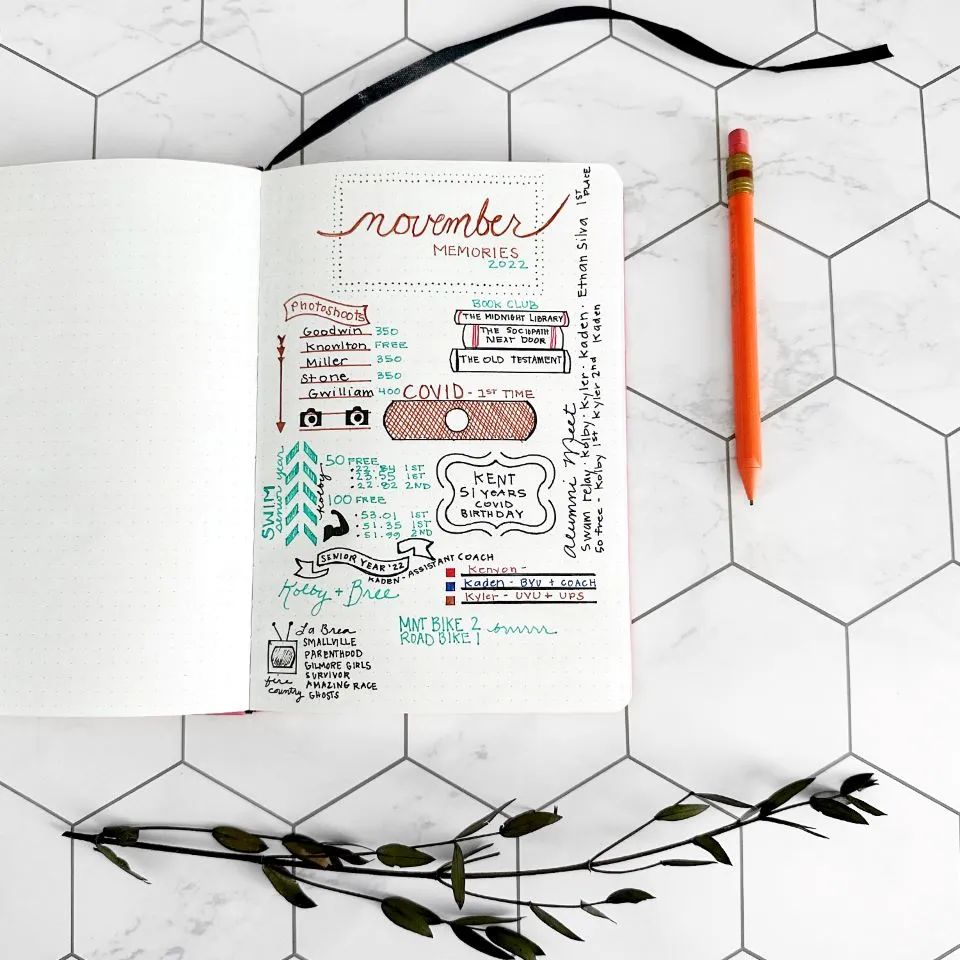 november
MEMORIES
2022
Photoshoots
Goodwin 350
Knowlton FREE
Miller 350
Stone 350
Gwilliam 400
BOOK CLUB
THE MIDNIGHT LIBRARY
THE SOCIOPATH
NEXT DOOR
THE OLD TESTAMENT
COVID - 1ST TIME
SWIM
senior year
Kolby
50 FREE
• 22.84 1ST
• 23.55 1ST
• 22.82 2ND
100 FREE
• 53.01 1ST
• 51.35 1ST
• 51.99 2ND
KENT
51 YEARS
COVID
BIRTHDAY
Alumni Meet
Swam relay · Kolby · Kyler · Kaden · Ethan Silva 1ST PLACE
50 free - Kolby 1st Kyler 2nd Kaden
SENIOR YEAR '22
KADEN - ASSISTANT COACH
Kolby + Bree
Kenyon -
Kaden - BYU + COACH
Kyler - UVU + UPS
MNT BIKE 2
ROAD BIKE 1
brrrrr
La Brea
SMALLVILLE
PARENTHOOD
GILMORE GIRLS
SURVIVOR
AMAZING RACE
GHOSTS
fire
country